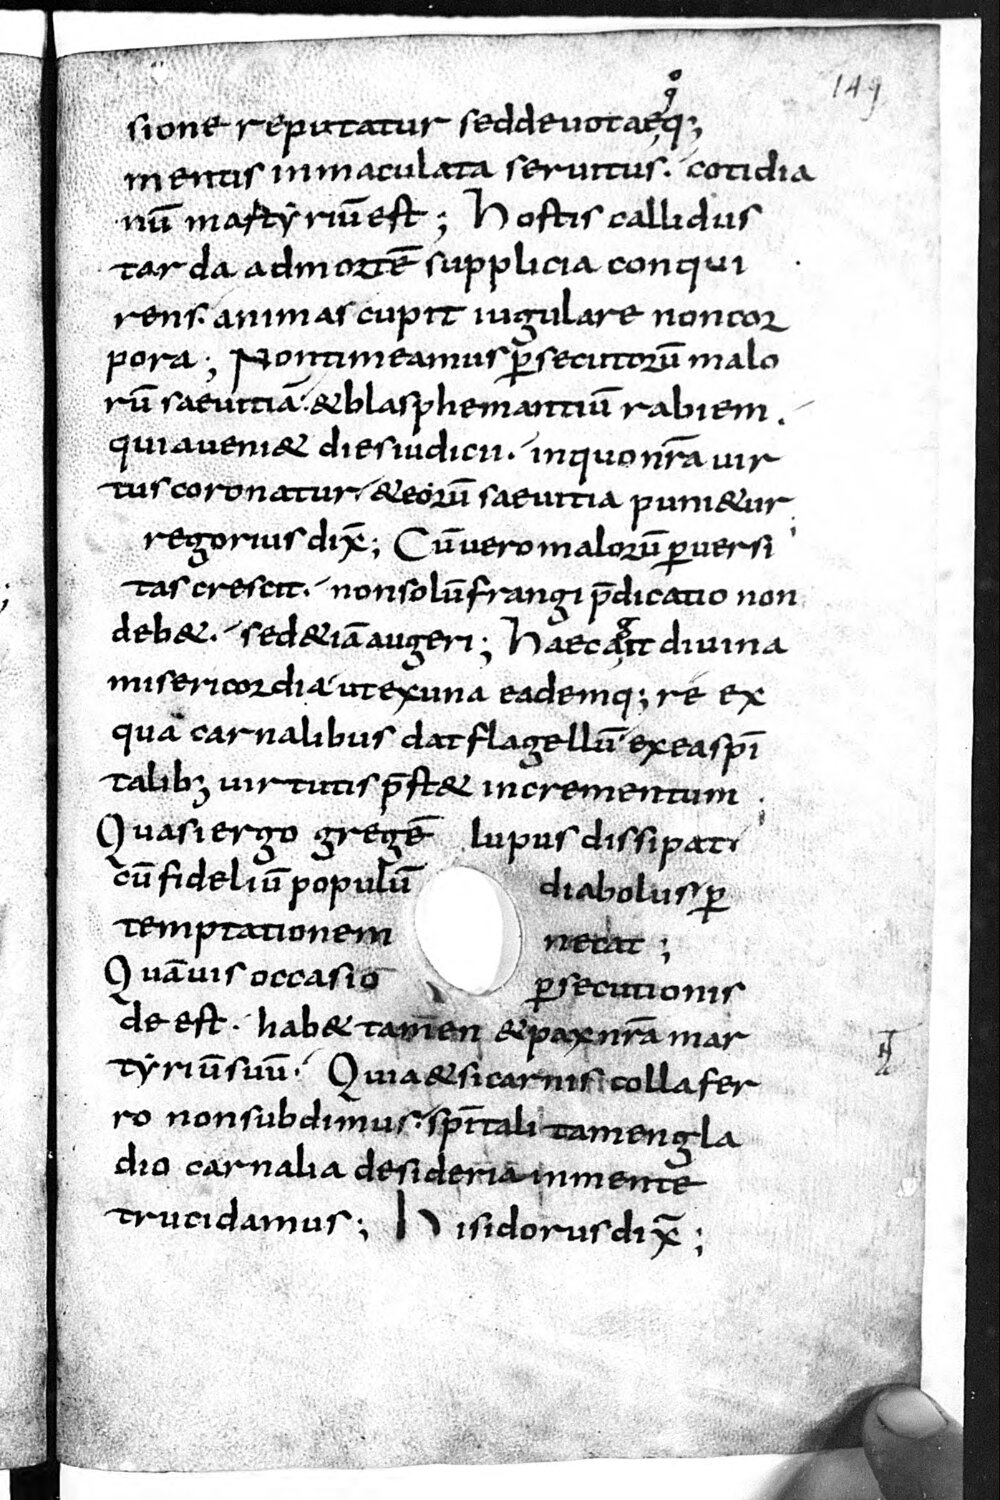 149
sione reputatur sed deuotaęq;
mentis inmaculata seruitus. cotidia
nū martẏriū est; Hostis callidus
tarda ad mortē supplicia conqui
rens. animas cupit iugulare non cor
pora; Non timeamus ꝑsecutorū malo
rū saeuitiā. & blasphemantiū rabiem.
quia ueni& dies iudicii. in quo nr̄a uir
tus coronatur & eorū saeuitia puni&ur;
regorius dix̄; Cū uero malorū ꝑuersi
tas crescit. non solū frangi p̄dicatio non
deb&. sed &iā augeri; Haec ait diuina
misericordia ut ex una eademq; re ex
qua carnalibus dat flagellū ex ea spī
talibꝫ uirtutis p̄st& incrementum.
Quasi ergo gregē lupus dissipat
cū fideliū populū diabolus ꝑ
temptationem necat;
Quāuis occasio ꝑsecutionis
de est. hab& tamen & pax nr̄a mar
tẏriū suū. Quia &si carnis colla fer
ro non subdimus. spīritali tamen gla
dio carnalia desideria in mente
trucidamus; Hisidorus dix̄;